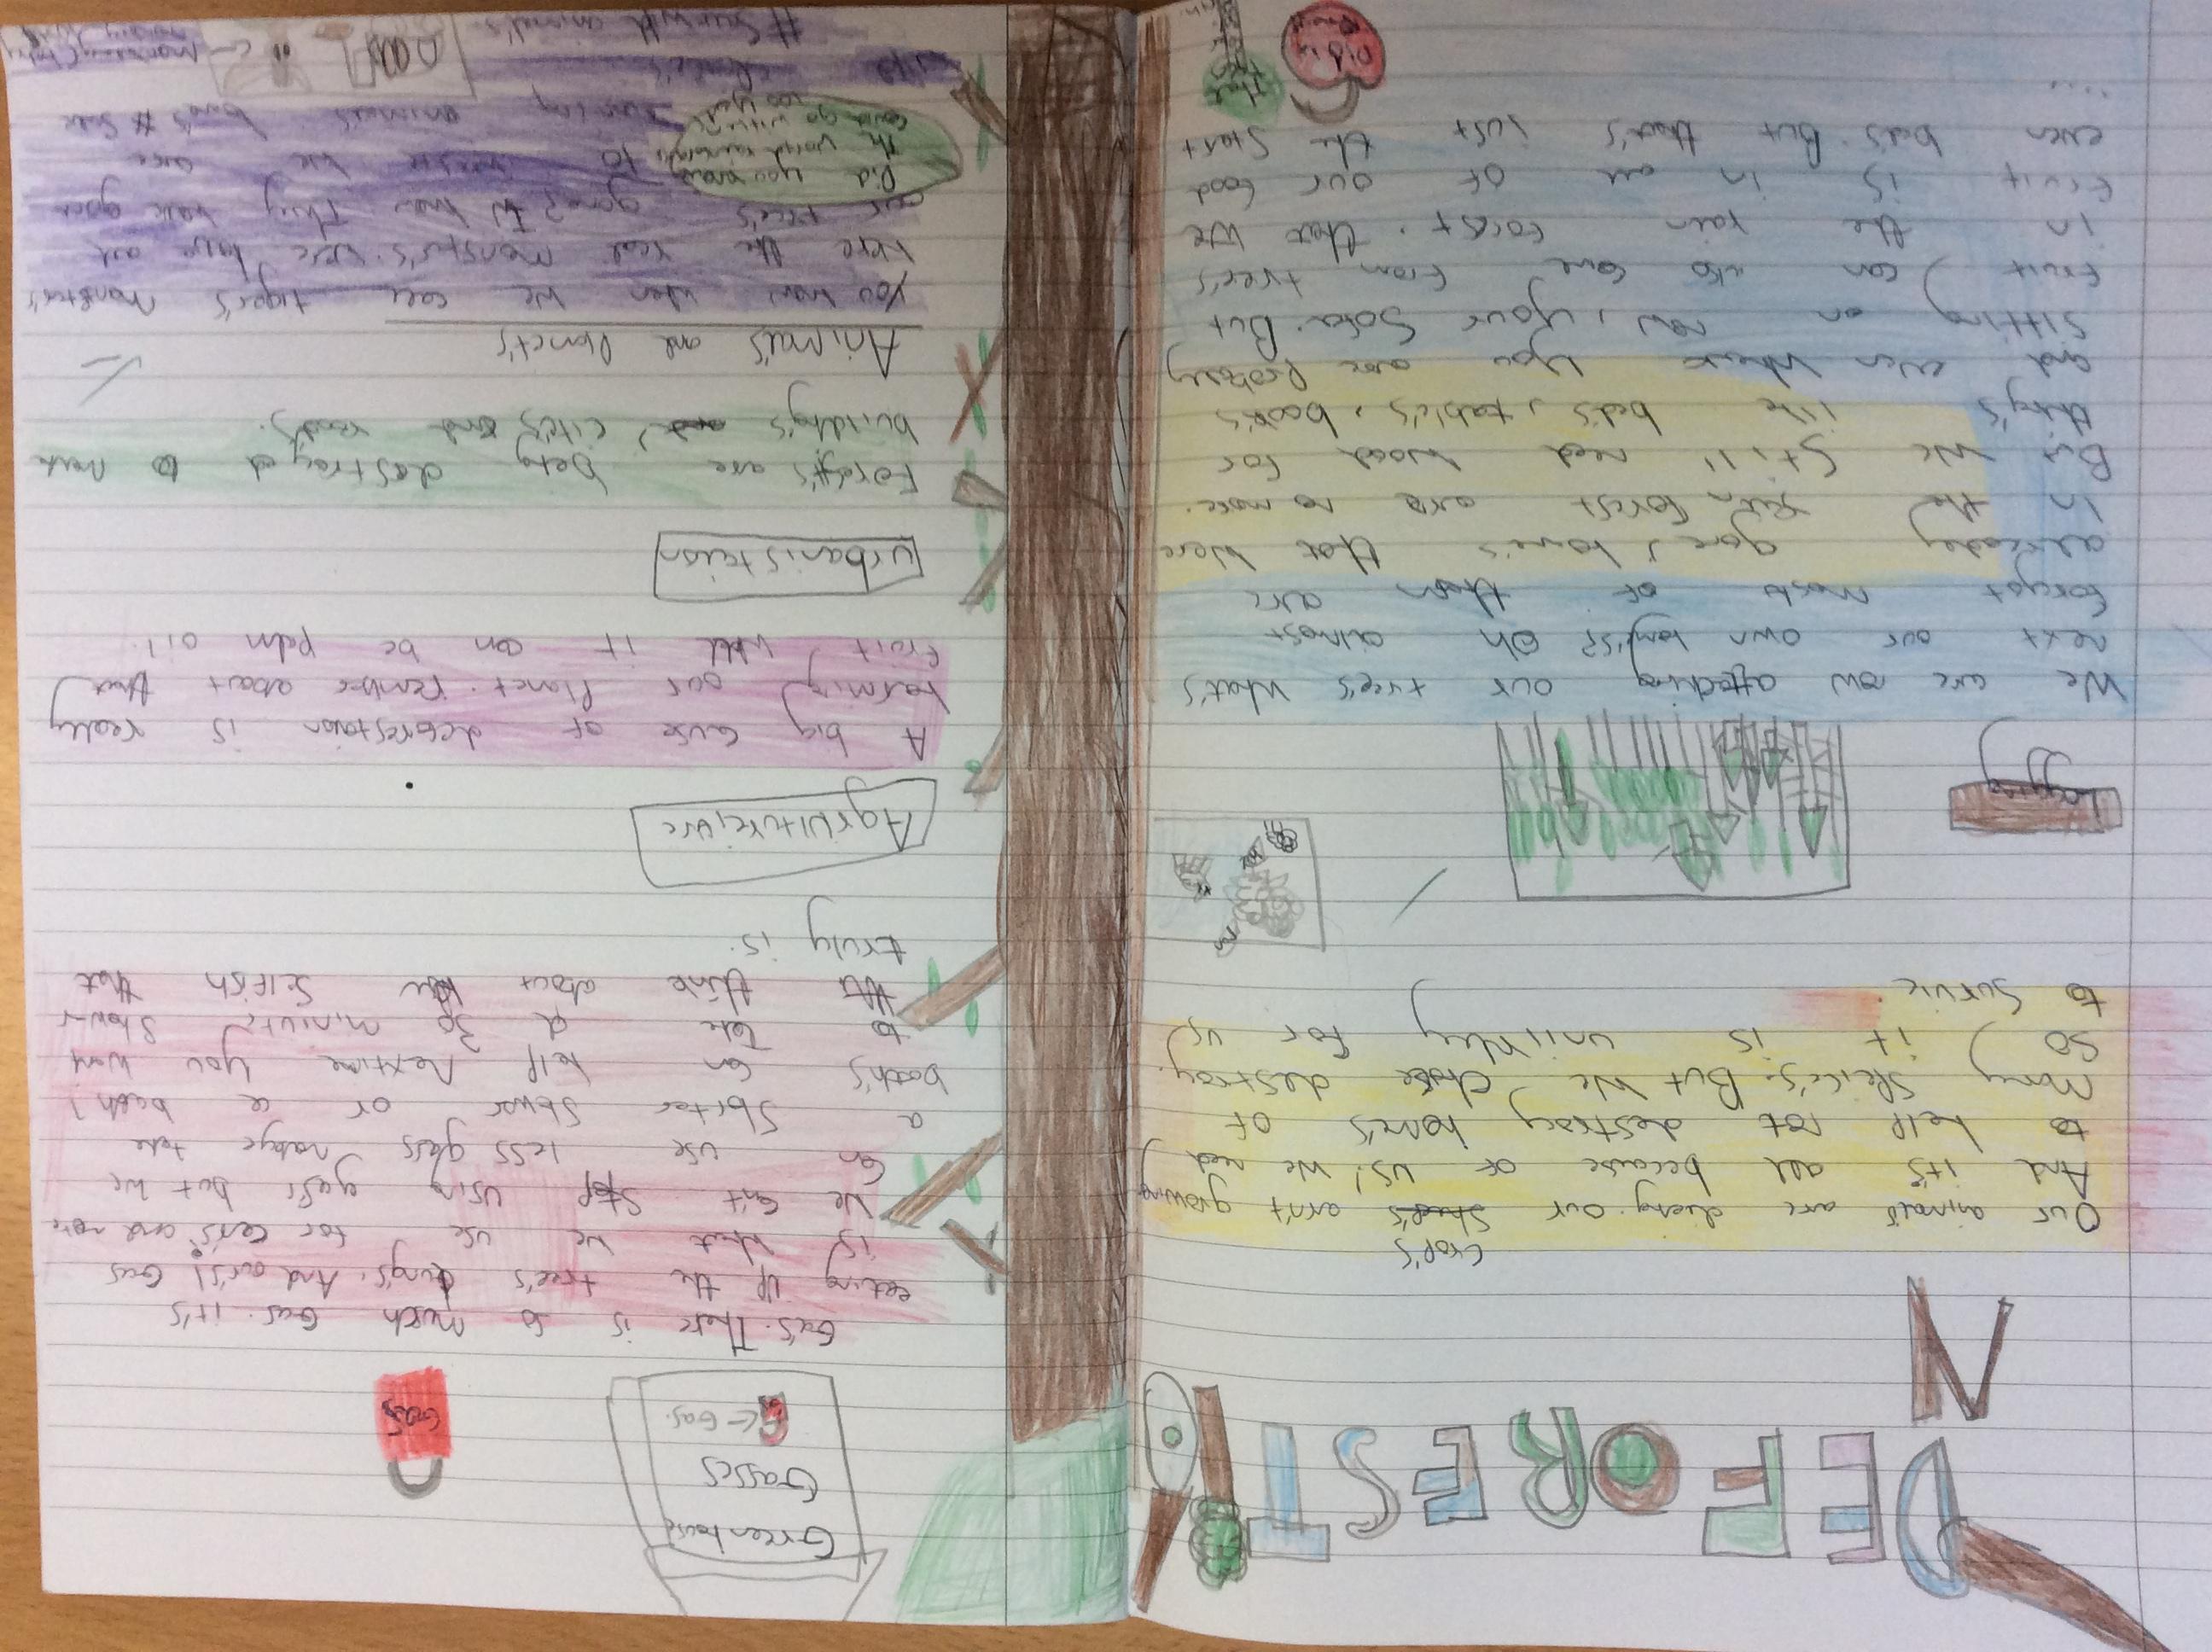 DEFOREST
N
crop's
Our animals are dieing. our arn't growing
And it's all because of us! We need
to help not destroy home's of
Many speice's. But we chose destroy.
So it is unlikley for us
to survie.
Logging
We are now affecting our tree's what's
next our own family's? Oh almost
forgot most of them are
allready gone, home's that were
in the rain forest are no more.
But we still need wood for
thing's like bed's, table's, book's
and even where you are probably
sitting on now, your sofa. But
fruit can also come from tree's
in the rain forest. then we
fruit is in all of our food
even bad's. But that's just the start
....
Did you
Greenhouse
Gasses
<- Gas.
Gas
Gas. There is so much Gas. it's
eating up the tree's lung's. And our's! Gas
is what we use for car's and more
we can't stop using gas! but we
can use less gass mabye take
a shorter shower or a bath!
bath's can help nextime you want
to take a 30 miniute shower
think about how selfish that
truly is.
Agruitureiure
A big cause of deforestaion is really
harming our planet. Rember about the
fruit well it can be palm oil.
Urbanisteion
Forest's are being destroyed to make
building's, citie's and road's.
Animal's and Planet's
You know when we call tiger's monster's
were the real monster's. were have all
our tree's gone? to know They have gone
to waste we are
Did you know
the world
could go without
animals
# Save
# Save the animal's